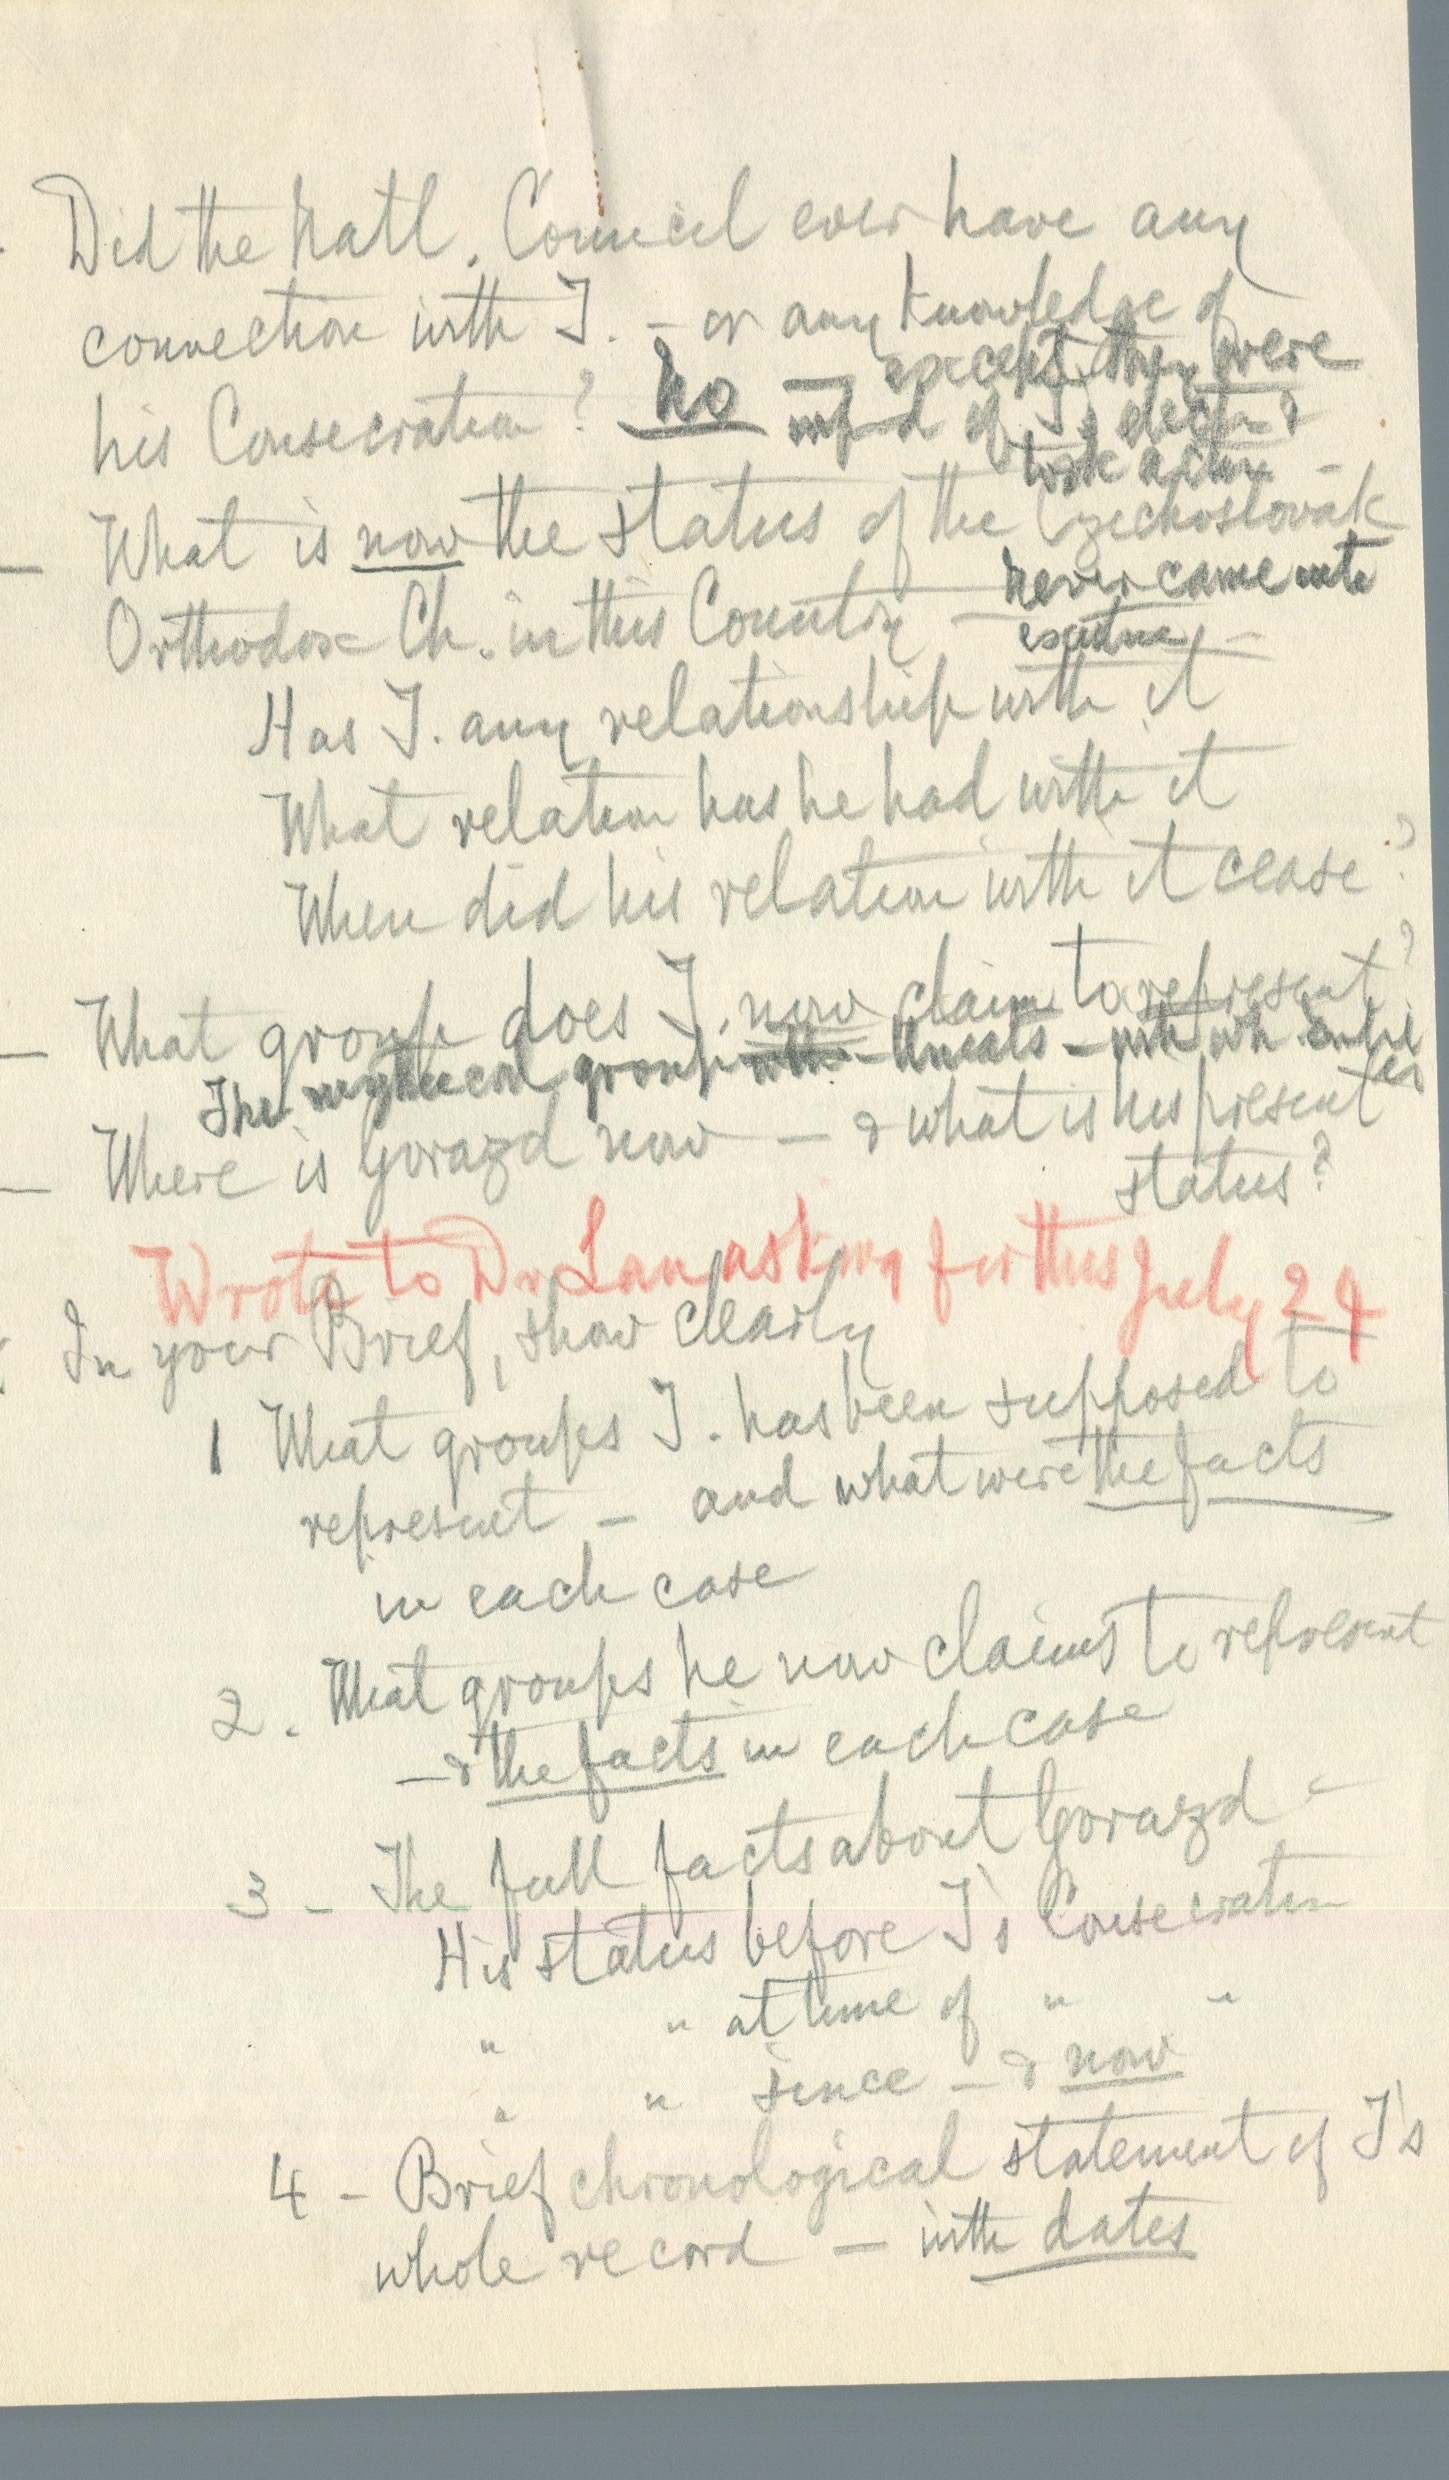 Did the Natl. Council ever have any
connection with J. – or any knowledge of
his Consecration? No – except they were
of J's elect. &
took action –
– What is now the status of the Czechoslovak
Orthodox Ch. in this Country – never came into
existence –
Has J. any relationship with it
What relation has he had with it
When did his relation with it cease?
– What group does J. now claim to represent?
The group
– Where is Gorazd now – & what is his present
status?
Wrote to Dr Lau asking for this July 24
In your Brief, show clearly
1 What groups J. has been supposed to
represent – and what were the facts
in each case
2. What groups he now claims to represent
– & the facts in each case
3 – The full facts about Gorazd –
His status before J's Consecration
" " at time of " "
" " since – & now
4 – Brief chronological statement of J's
whole record – with dates